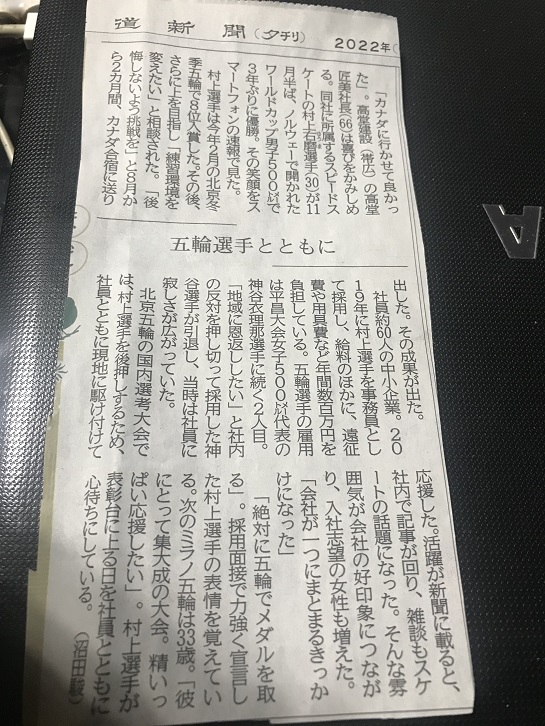 道新聞(夕刊)
2022年(
五輪選手とともに
「カナダに行かせて良かっ
た」。高堂建設(帯広)の高堂
匠美社長(66)は喜びをかみしめ
る。同社に所属するスピードス
ケートの村上右磨選手(30)が11
月半ば、ノルウェーで開かれた
ワールドカップ男子500㍍で
3年ぶりに優勝。その笑顔をス
マートフォンの速報で見た。
村上選手は今年2月の北京冬
季五輪で8位入賞した。その後、
さらに上を目指し「練習環境を
変えたい」と相談された。「後
悔しないよう挑戦を」と8月か
ら2カ月間、カナダ合宿に送り
出した。その成果が出た。
社員約60人の中小企業。20
19年に村上選手を事務員とし
て採用し、給料のほかに、遠征
費や用具費など年間数百万円を
負担している。五輪選手の雇用
は平昌大会女子500㍍代表の
神谷衣理那選手に続く2人目。
「地域に恩返ししたい」と社内
の反対を押し切って採用した神
谷選手が引退し、当時は社員に
寂しさが広がっていた。
北京五輪の国内選考大会で
は、村上選手を後押しするため、
社員とともに現地に駆け付けて
応援した。活躍が新聞に載ると、
社内で記事が回り、雑談もスケ
ートの話題になった。そんな雰
囲気が会社の好印象につなが
り、入社志望の女性も増えた。
「会社が一つにまとまるきっか
けになった」
「絶対に五輪でメダルを取
る」。採用面接で力強く宣言し
た村上選手の表情を覚えてい
る。次のミラノ五輪は33歳。「彼
にとって集大成の大会。精いっ
ぱい応援したい」。村上選手が
表彰台に上る日を社員とともに
心待ちにしている。(沼田駿)
A